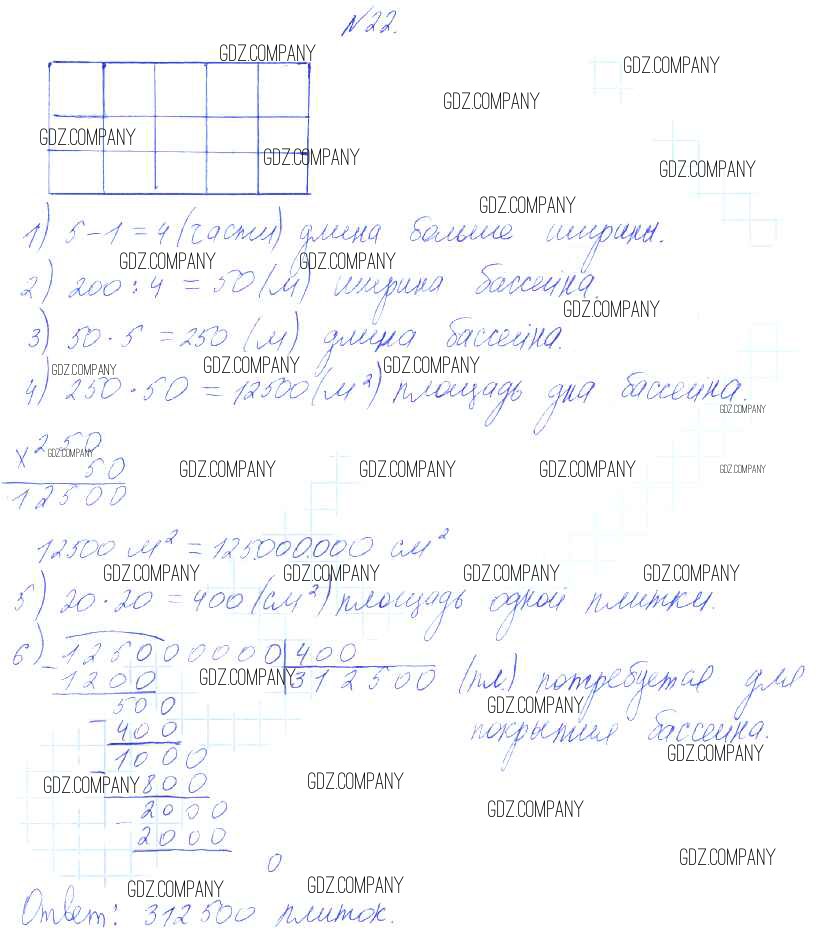 №22.
GDZ.COMPANY
GDZ.COMPANY
GDZ.COMPANY
GDZ.COMPANY
GDZ.COMPANY
GDZ.COMPANY
GDZ.COMPANY
1) 5-1=4 (части) длина больше ширины.
GDZ.COMPANY GDZ.COMPANY
2) 200:4=50 (м) ширина бассейна.
GDZ.COMPANY
3) 50·5=250 (м) длина бассейна.
GDZ.COMPANY GDZ.COMPANY GDZ.COMPANY
4) 250·50=12500 (м²) площадь дна бассейна.
GDZ.COMPANY
х 250
GDZ.COMPANY
50
GDZ.COMPANY GDZ.COMPANY GDZ.COMPANY GDZ.COMPANY
12500
12500 м² = 125.000.000 см²
GDZ.COMPANY GDZ.COMPANY GDZ.COMPANY GDZ.COMPANY
5) 20·20=400 (см²) площадь одной плитки.
6) 125000000 400
- 1200 GDZ.COMPANY 312500 (пл.) потребуется для
500 GDZ.COMPANY
- 400 покрытия бассейна.
GDZ.COMPANY
1000
- 800
GDZ.COMPANY GDZ.COMPANY
2000 GDZ.COMPANY
- 2000
0 GDZ.COMPANY
GDZ.COMPANY GDZ.COMPANY
Ответ: 312500 плиток.